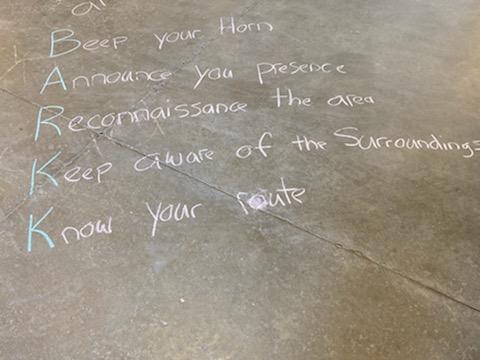 Beep your Horn
Announce you presence
Reconnaissance the area
Keep aware of the Surroundings
Know your route